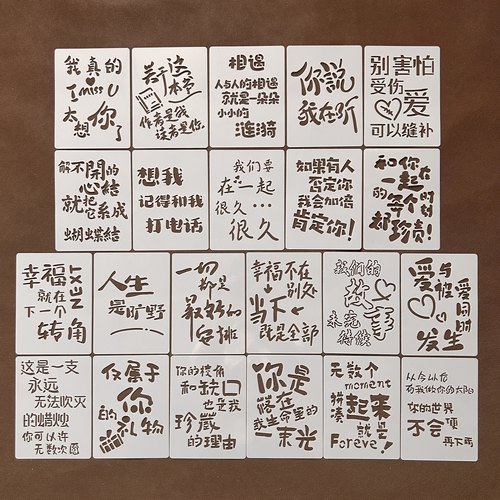 我真的
I miss U
太想你了
关于这本书
作者是我
读者是你
相遇
人与人的相遇
就是一朵朵
小小的
涟漪
你說
我在听
别害怕
受伤
爱
可以缝补
解不開的
心結
就把它系成
蝴蝶結
想我
记得和我
打电话
我们要
在一起
很久…
很久
如果有人
否定你
我会加倍
肯定你!
和你在
一起
的每个时刻
都珍贵!
幸福
就在
下一个
转角
NEXT
人生
是旷野
一切
都是
最好的
安排
幸福不在
别处
当下
既是全部
我们的
故事
未完
待续
爱与被
爱同时
发生
这是一支
永远
无法吹灭
的蜡烛
你可以许
无数次愿
仅属于
你
的礼物
你的棱角
和缺口
也是我
珍藏
的理由
你是
落在
我生命里的
一束光
无数个
moment
拼凑起来
就是
Forever!
从今以后
有我做你的太阳
你的世界
不会
再下雨